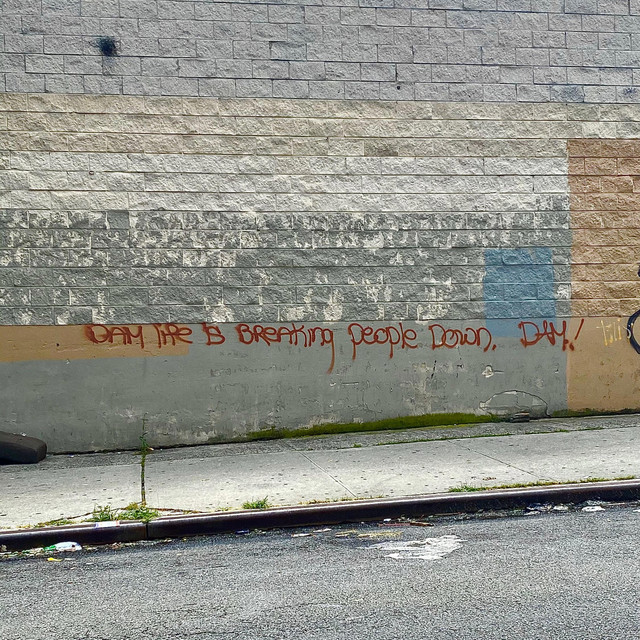 DAM life is BREAKing people Down. DAM!